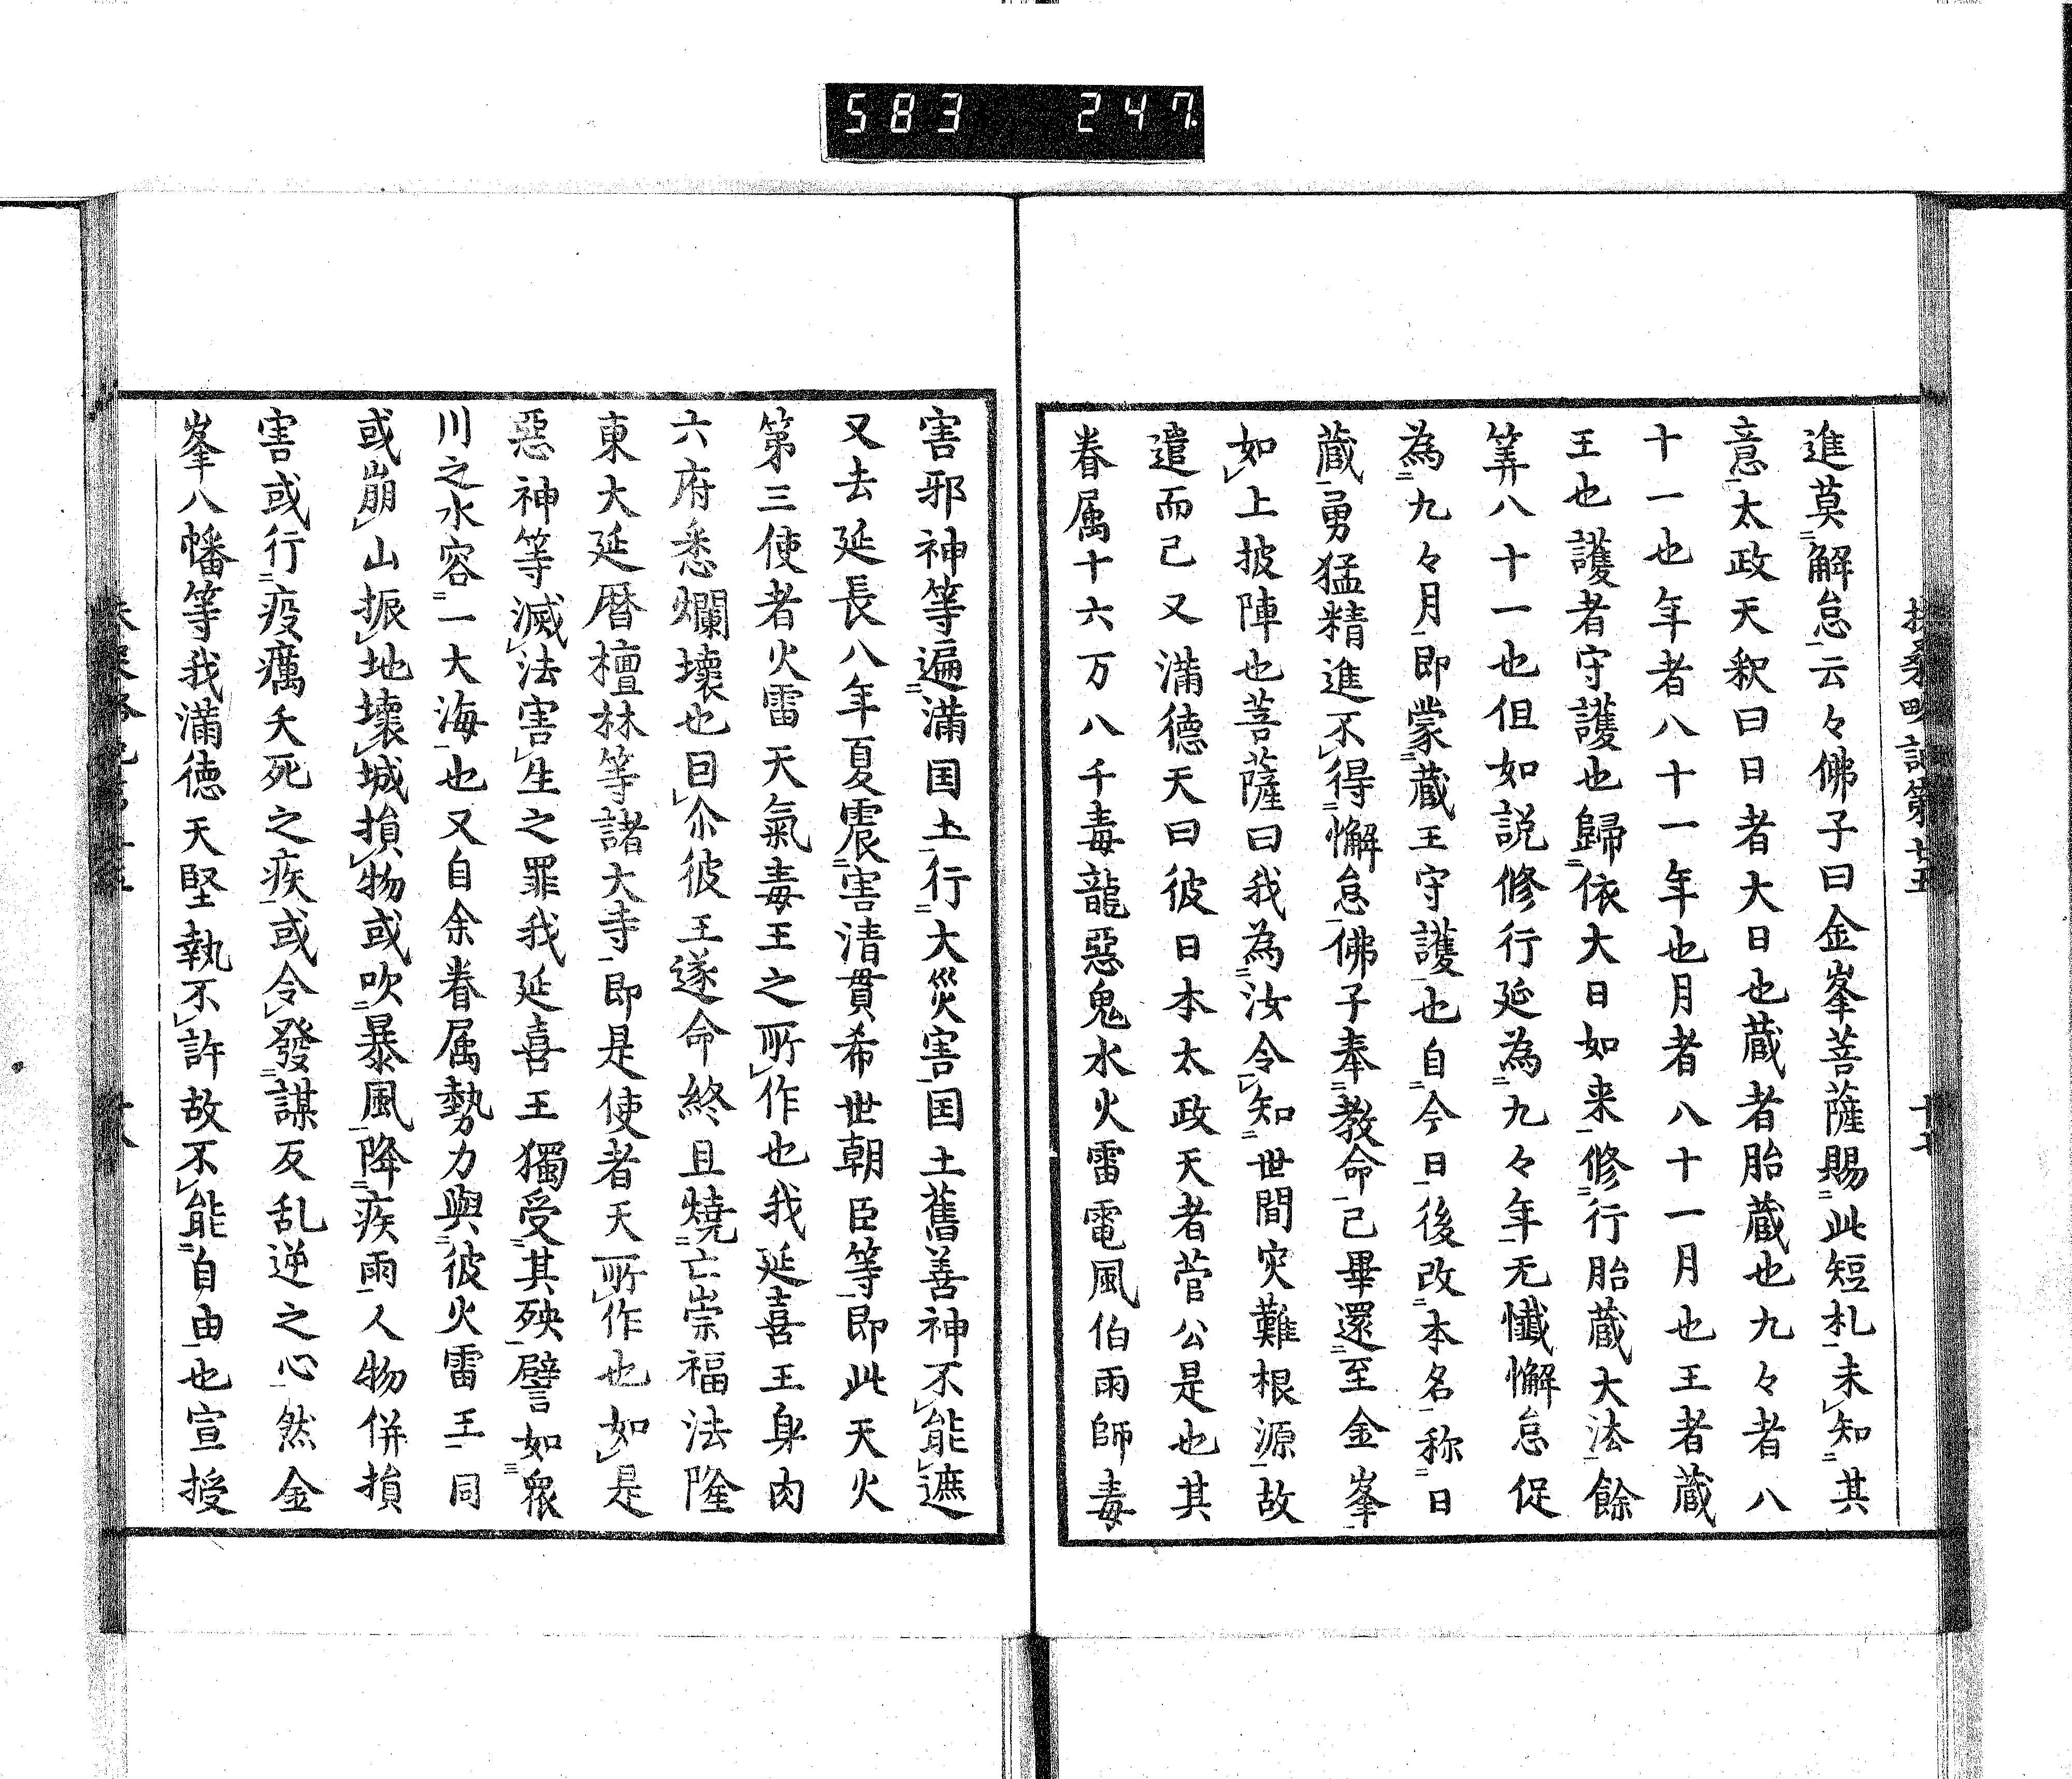 583 247
進莫解怠云々佛子曰金峯菩薩賜此短札未知其
意太政天釈曰日者大日也蔵者胎蔵也九々者八
十一也年者八十一年也月者八十一月也王者蔵
王也護者守護也歸依大日如来修行胎蔵大法餘
筭八十一也但如説修行延為九々年无懺懈怠促
為九々月即蒙蔵王守護也自今日後改本名称日
蔵勇猛精進不得懈怠佛子奉教命己畢還至金峯
如上披陣也菩薩曰我為汝令知世間灾難根源故
遣而己又満徳天曰彼日本太政天者菅公是也其
眷属十六万八千毒龍惡鬼水火雷電風伯雨師毒
害邪神等遍満国土行大災害国土舊善神不能遮
又去延長八年夏震害清貫希世朝臣等即此天火
第三使者火雷天氣毒王之所作也我延喜王身肉
六府悉爛壊也因尒彼王遂命終且燒亡崇福法隆
東大延暦檀林等諸大寺即是使者天所作也如是
惡神等滅法害生之罪我延喜王獨受其殃譬如衆
川之水容一大海也又自余眷属勢力與彼火雷王同
或崩山振地壊城損物或吹暴風降疾雨人物併損
害或行疫癘夭死之疾或令發謀反乱逆之心然金
峯八幡等我満徳天堅執不許故不能自由也宣授